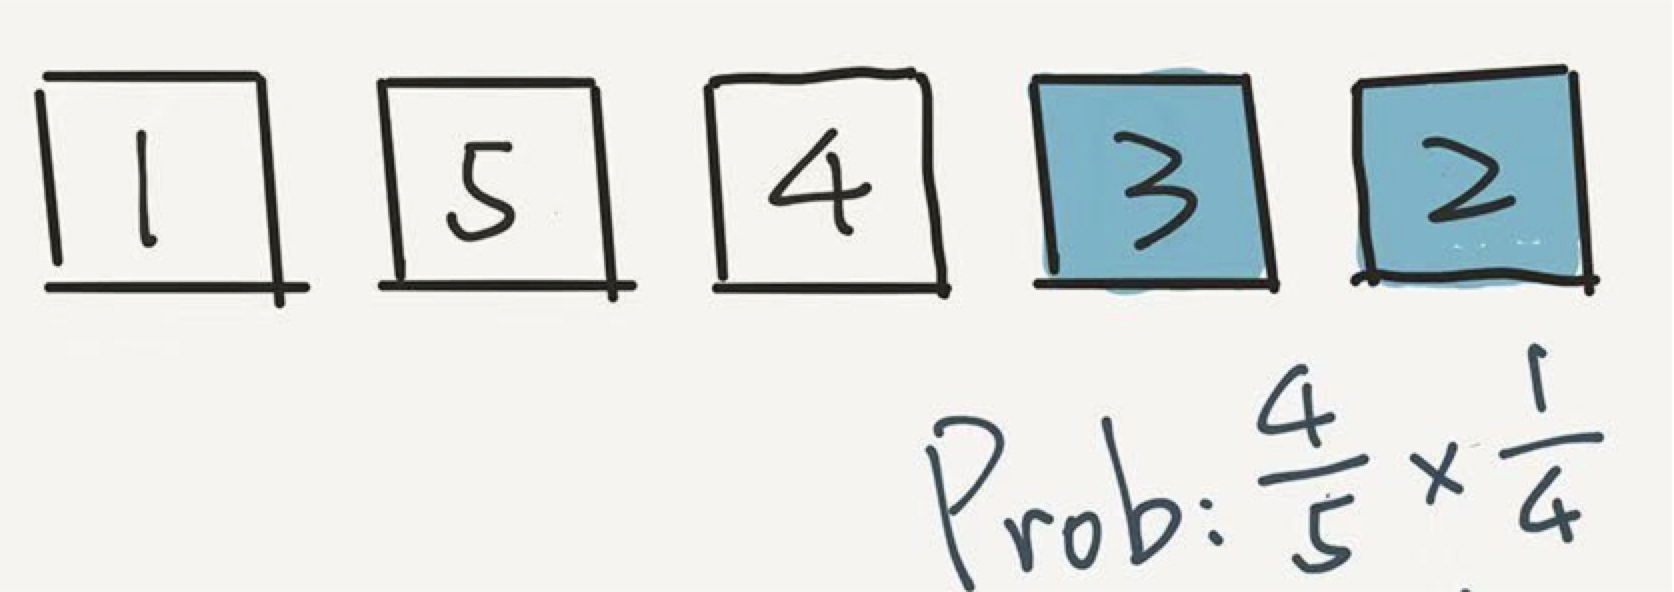 1 5 4 3 2
Prob: 4/5 × 1/4